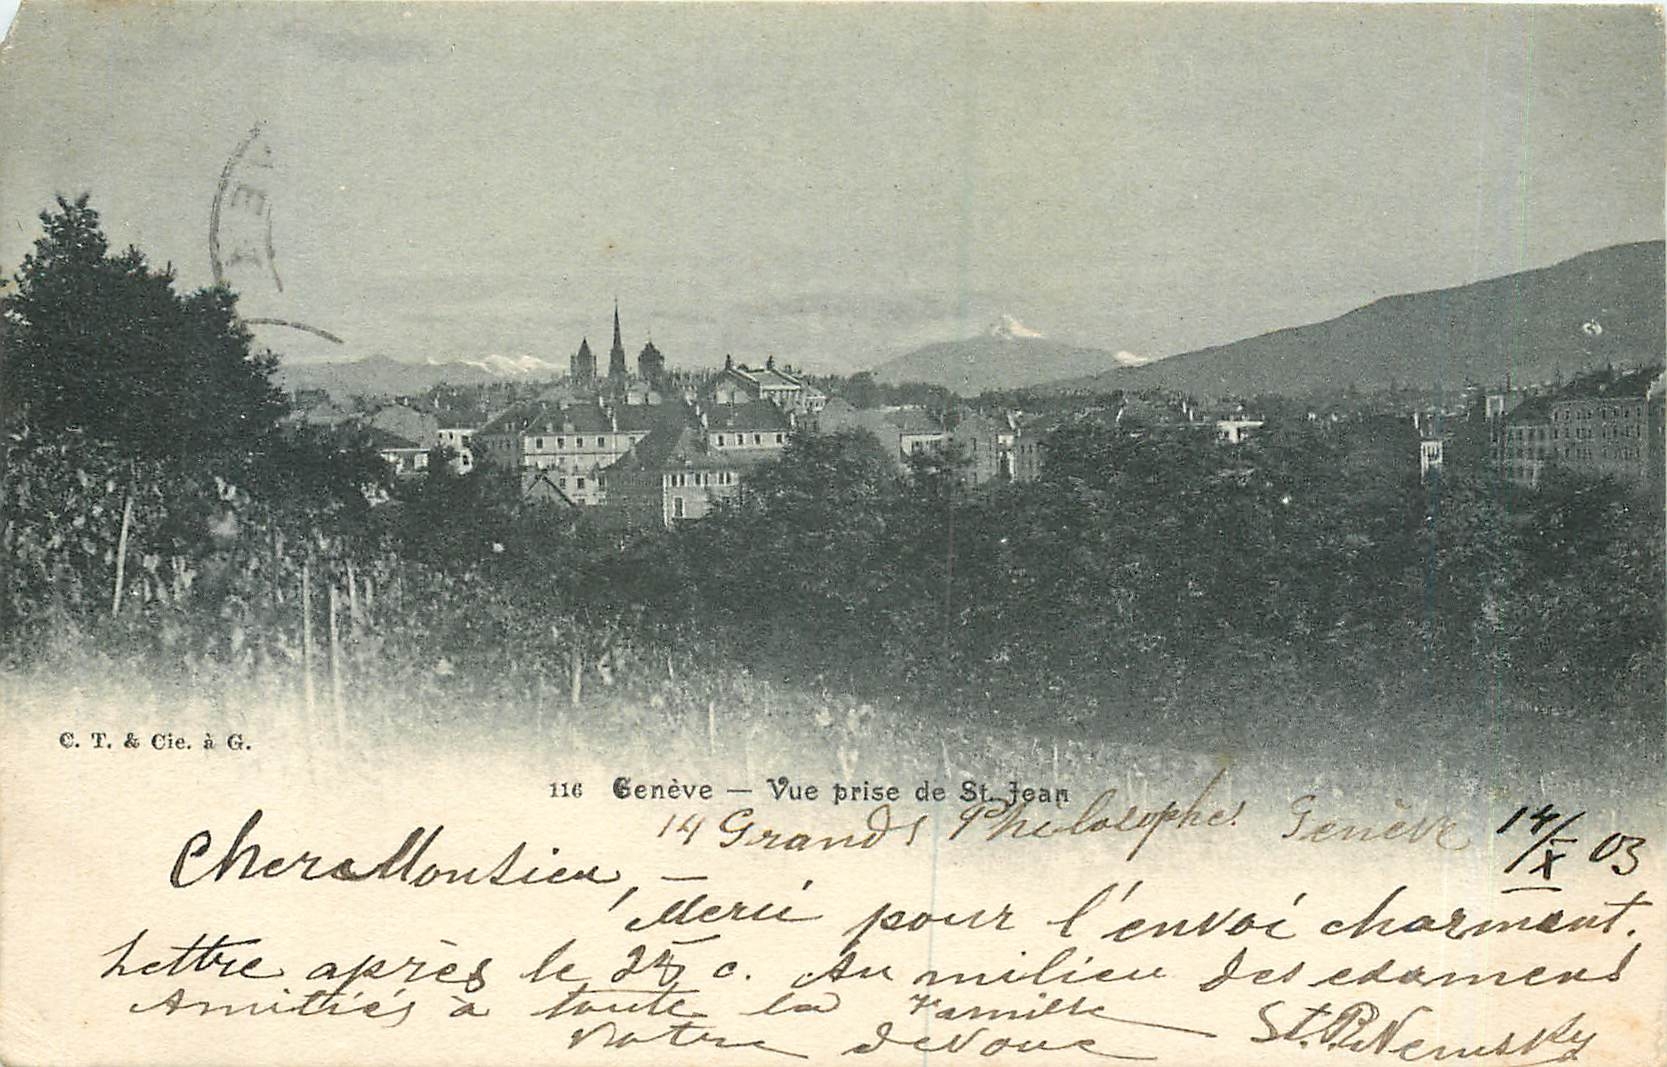 C. T. & Cie. à G.
116 Genève — Vue prise de St. Jean
14 Grands Philosophes Genève 14/X 03
Cher Monsieur, —
Merci pour l'envoi charmant.
Lettre après le 25 c. Au milieu des examens
Amitiés à toute la famille
Votre dévoué St. P. Nemsky